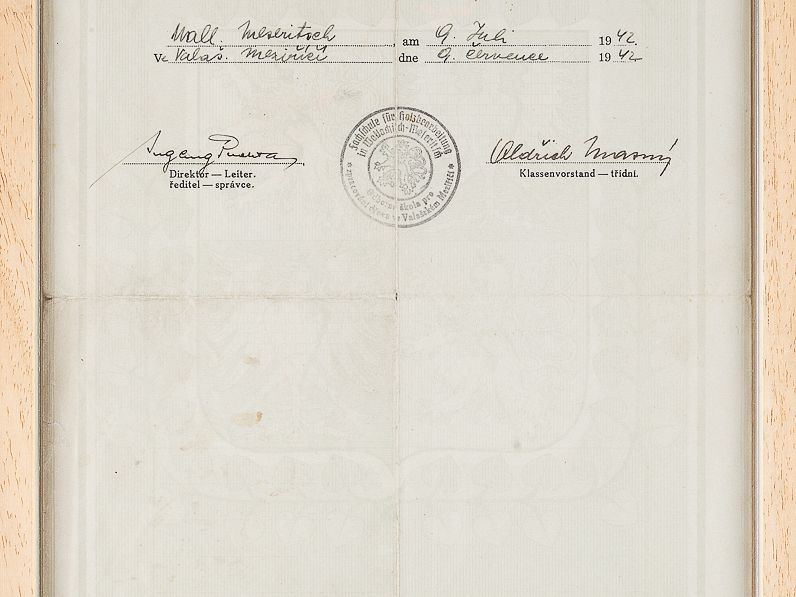 Wall. Meseritsch, am 9. Juli 1942.
Ve Valaš. Meziříčí dne 9. července 1942
Fachschule für Holzbearbeitung
in Wallachisch-Meseritsch
Odborná škola pro
zpracování dřeva ve Valašském Meziříčí
Oldřich Mrasný
Direktor — Leiter.
ředitel — správce.
Klassenvorstand — třídní.